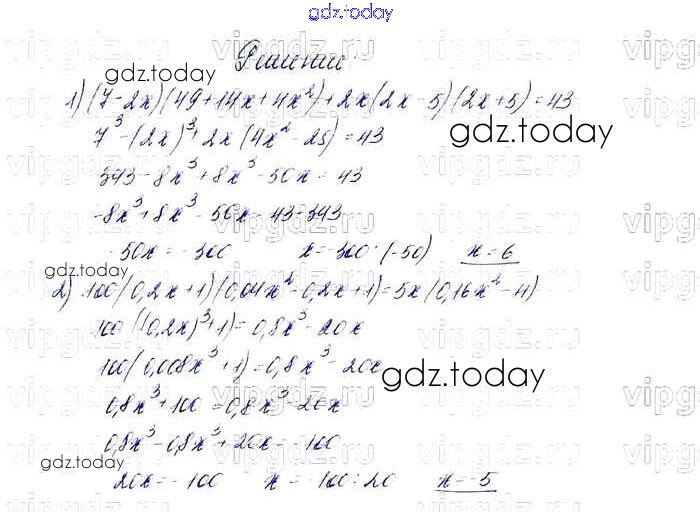 gdz.today
Решение:
gdz.today
1) (7-2x)(49+14x+4x²)+2x(2x-5)(2x+5)=43
7³-(2x)³+2x(4x²-25)=43
gdz.today
343-8x³+8x³-50x=43
-8x³+8x³-50x=43-343
-50x=-300 x=-300:(-50) x=6
gdz.today
2) 100(0,2x+1)(0,04x²-0,2x+1)=5x(0,16x²-4)
100((0,2x)³+1)=0,8x³-20x
100(0,008x³+1)=0,8x³-20x
gdz.today
0,8x³+100=0,8x³-20x
0,8x³-0,8x³+20x=-100
gdz.today
20x=-100 x=-100:20 x=-5
vipgdz.ru